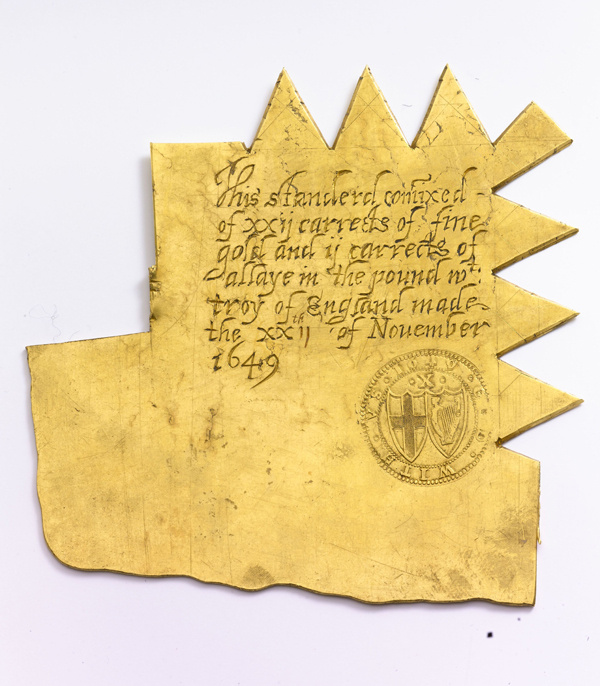 This standerd com̄ixed
of xxij carrects of fine
gold and ij carrects of
allaye in the pound wt:
troy of England made
the xxijth of Nouember
1649
·X·